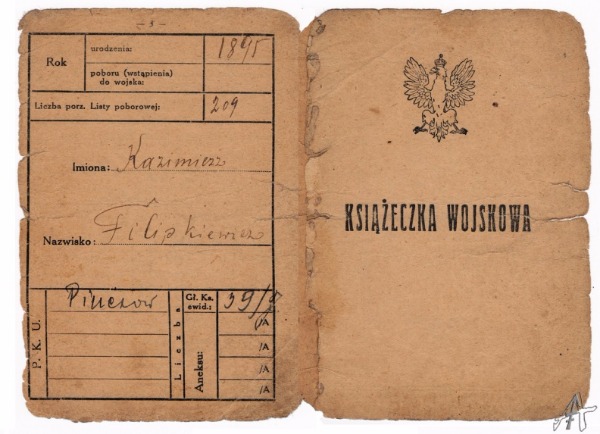 — 3 —
Rok
urodzenia: 1895
poboru (wstąpienia)
do wojska:
Liczba porz. Listy poborowej: 209
Imiona: Kazimierz
Nazwisko: Filipkiewicz
P. K. U.
Pińczów
Liczba
Gł. Ks.
ewid.:
39/
Aneksu:
/A
/A
/A
/A
KSIĄŻECZKA WOJSKOWA